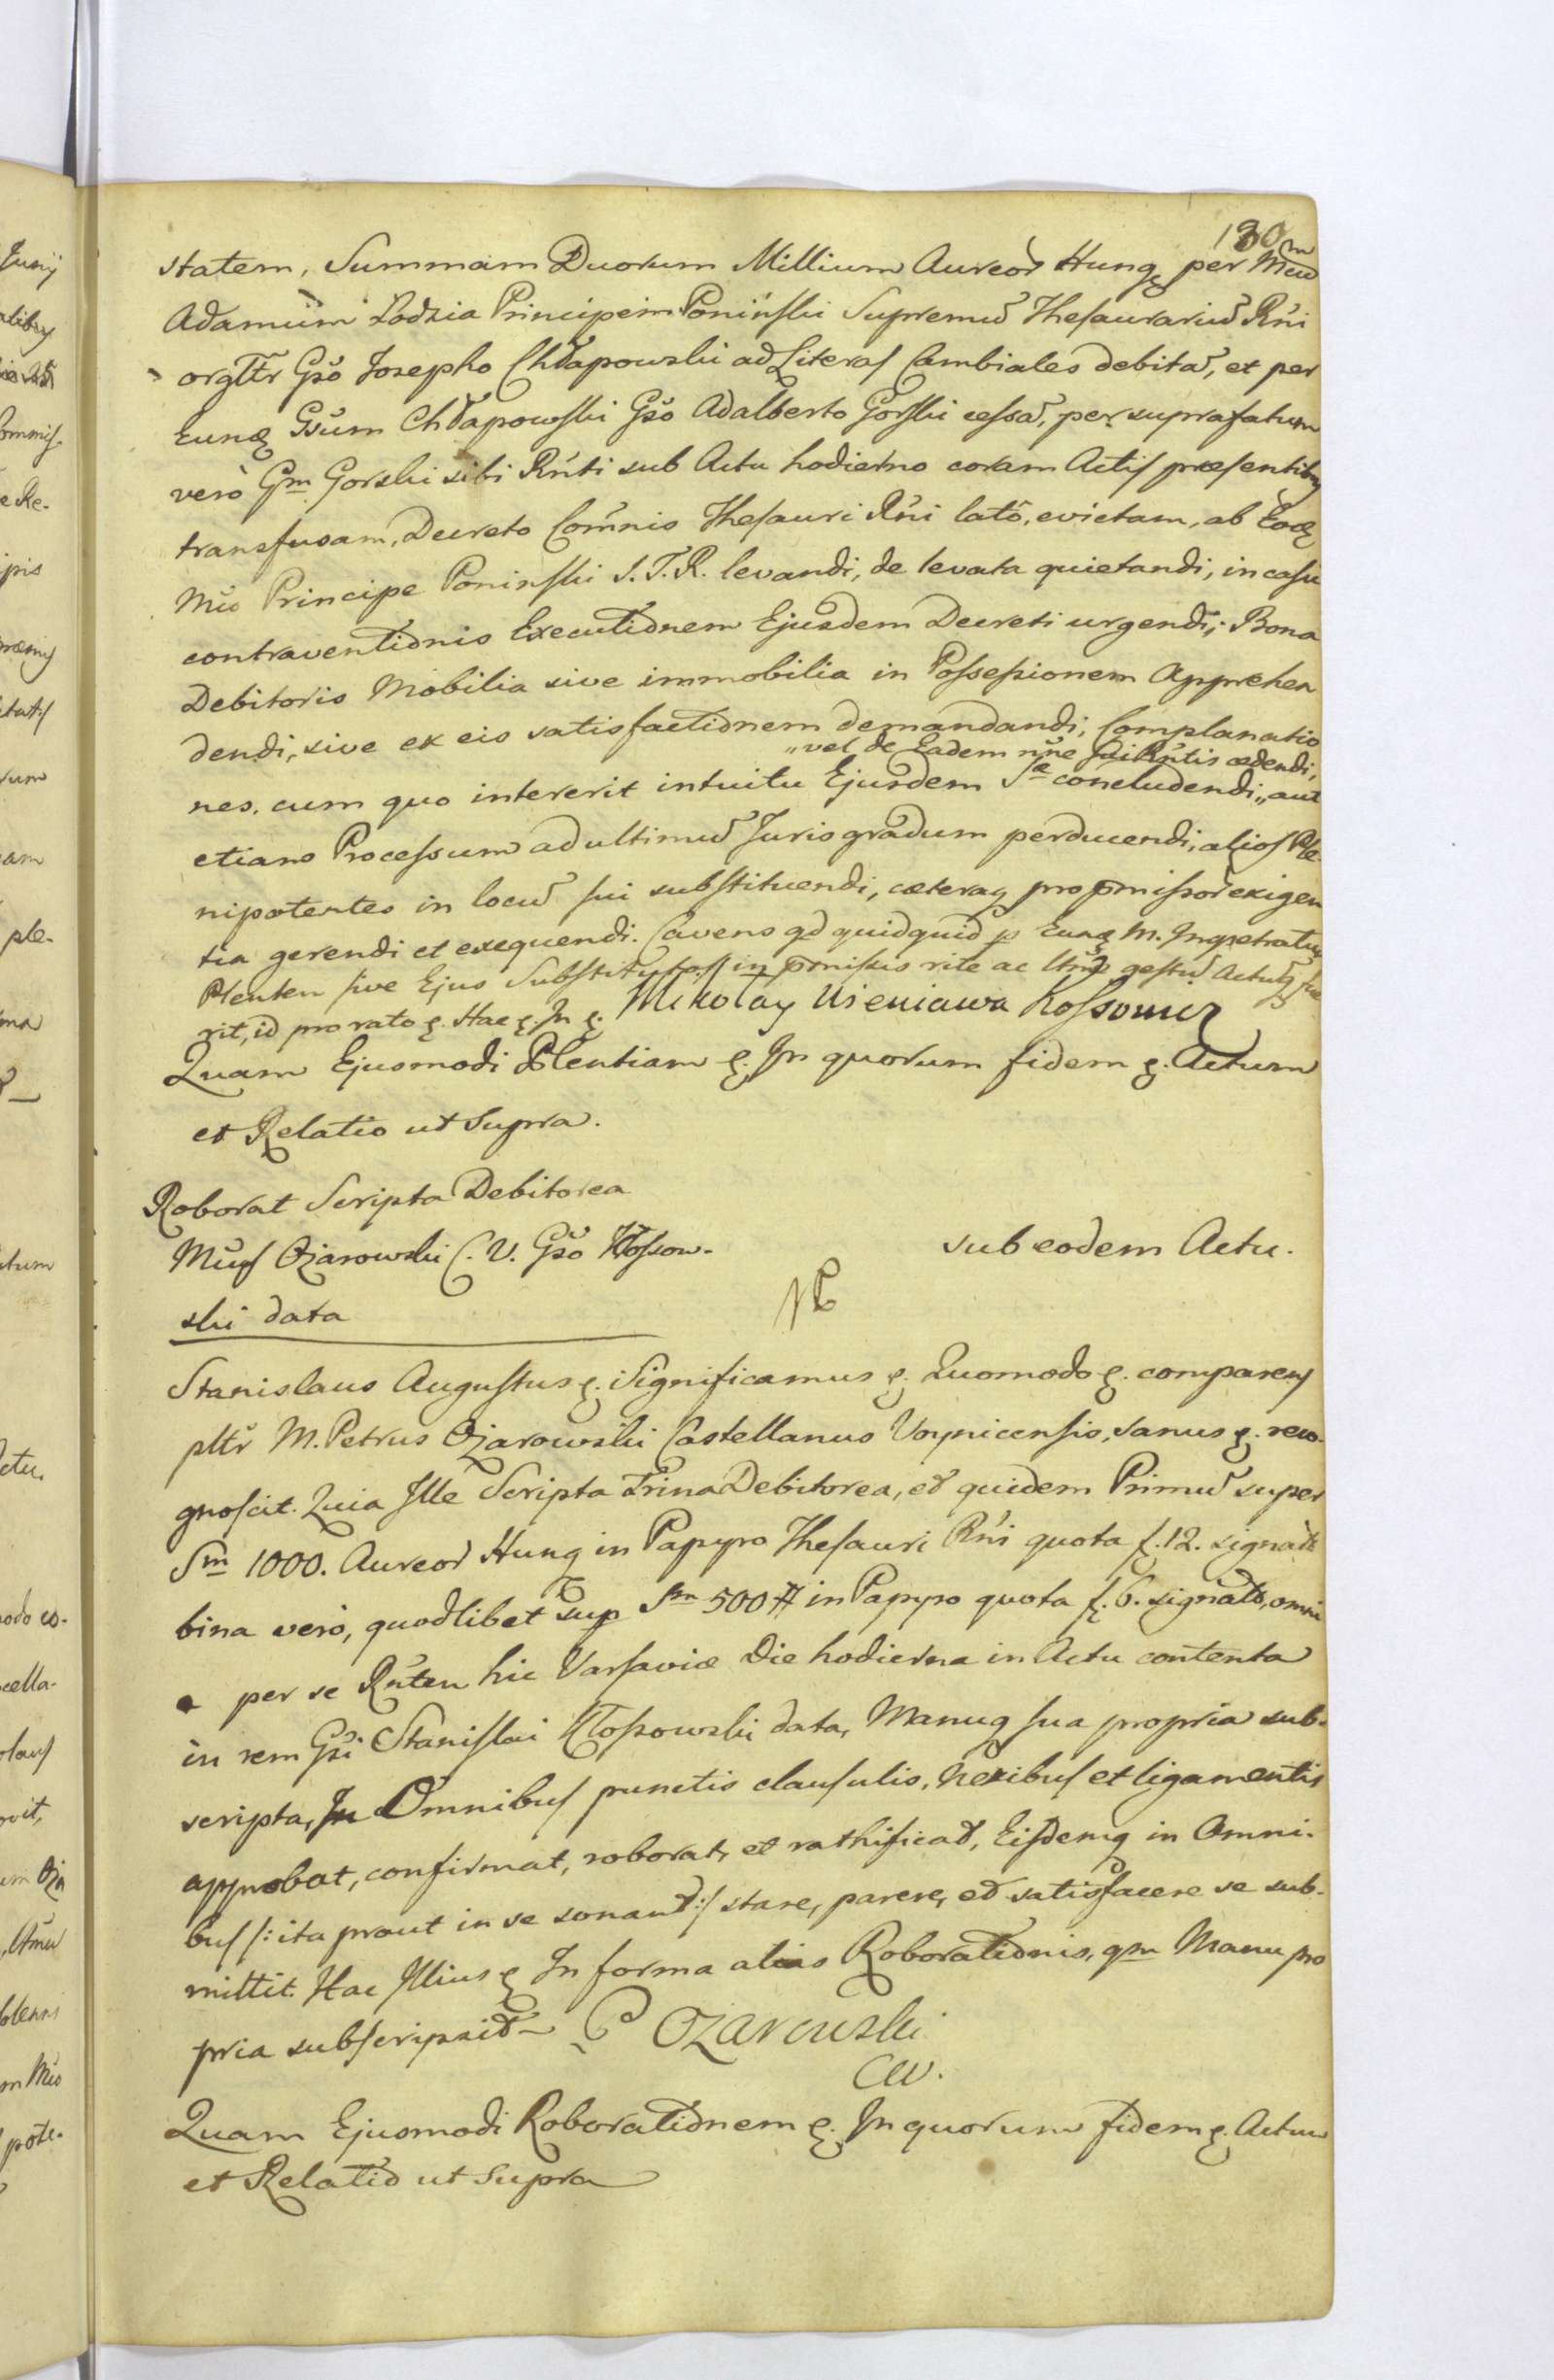 130
statem, Summam Duorum Millium Aureor Hung. per Mcum
Adamum Łodzia Principem Poninski Supremu Thesaurariu Rni
orgltr Gso Josepho Chłapowski ad Literas Cambiales debita, et per
Eunq Gsum Chłapowski Gso Adalberto Gorski cessa, per suprafatum
verò Gm Gorski sibi Rnti sub Actu hodierno coram Actis præsentibq
transfusam, Decreto Comnis Thesauri Rni lato, evictam, ab Eoq
Mco Principe Poninski S.T.R. levandi, de levata quietandi, in casu
contraventionis Executionem Ejusdem Decreti urgendi; Bona
Debitoris Mobilia sive immobilia in Possessionem Apprehen
dendi, sive ex eis satisfactionem demandandi, Complanatio
„vel de Eadem nne sui Rntis cedendi,
nes, cum quo intererit intuitu Ejusdem Sæ concludendi „aut
etiam Processum ad ultimu Juris gradum perducendi, alios Ple-
nipotentes in locu sui substituendi, cæteraq pro pmissor exigen
tia gerendi et exequendi. Cavens qd quidquid p Eunq M. Impetratu
Plenten sive Ejus Substitutos in pmissis rite ac ltme gestu Actuq fue
rit, id pro rato ę. Hac ę. In ę. Mikołay Wieniawa Kossowicz
Quam Ejusmodi Plentiam ę. In quorum fidem ę. Actum
et Relatio ut Supra.
Roborat Scripta Debitorea
Mcus Ożarowski C. V. Gso Kłossow-
ski data
sub eodem Actu.
Stanislaus Augustus ę. Significamus ę. Quomodo ę. comparens
pltr M. Petrus Ożarowski Castellanus Voynicensis, sanus ę. reco-
gnoscit. Quia Ille Scripta Trina Debitorea, et quidem Primu super
Sm 1000. Aureor Hung in Papyro Thesauri Rni quota f. 12. signato
bina verò, quodlibet sup Sm 500 # in Papyro quota f. 6. signato, omnia
per se Rnten hic Varsaviæ Die hodierna in Actu contenta
in rem Gsi Stanislai Kłossowski data, Manuq sua propria sub-
scripta, In Omnibus punctis clausulis, nexibus et ligamentis
approbat, confirmat, roborat, et rathificat, Eisdemq in Omni-
bus /: ita prout in se sonant :/ stare, parere, et satisfacere se sub-
mittit. Hac Illius ę In forma alias Roborationis, qm Manu pro
pria subscripsit ~ P Ozarowski
CW.
Quam Ejusmodi Roborationem ę. In quorum fidem ę. Actum
et Relatio ut Supra